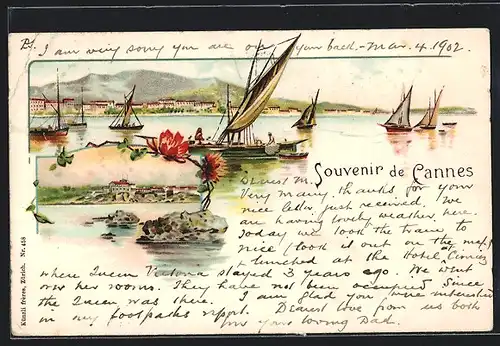 P.S. I am very sorry you are on your back. - Mar. 4. 1902
Souvenir de Cannes
Dearest M.
Very many thanks for your
nice letter just received. We
are having lovely weather here.
Today we took the tram to
Nice (look it out on the map)
& lunched at the Hotel Cimiez
where Queen Victoria stayed 3 years ago. We went
over her rooms. They have not been occupied since
the Queen was there. I am glad you were interested
in my footpacks rippt. Dearest love from us both
Yr loving Dad.
Künzli frères, Zürich. Nr. 458